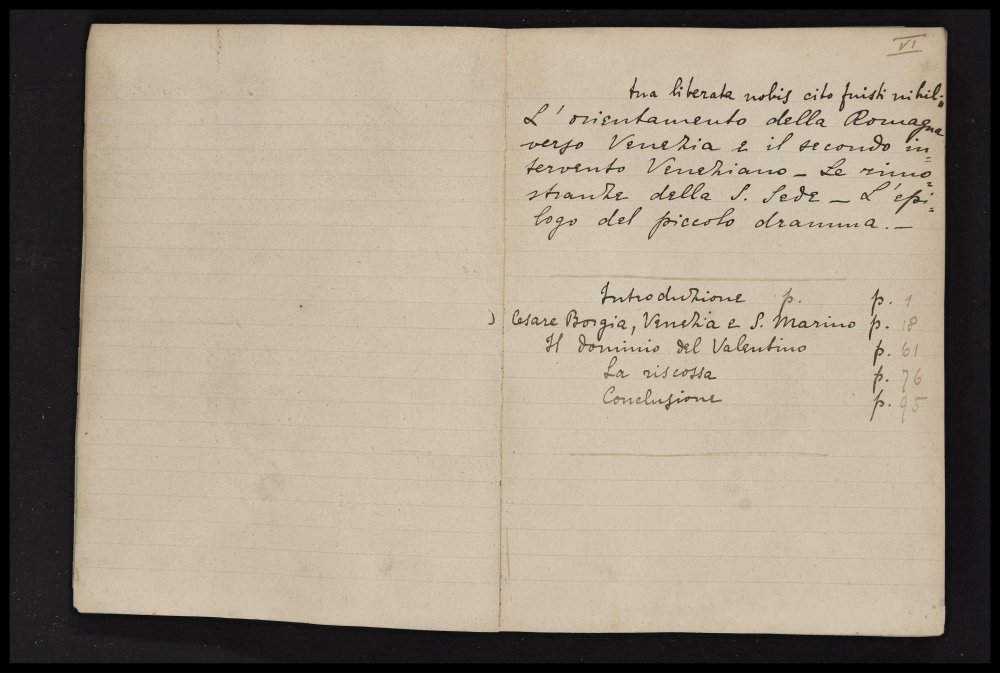 VI
tua liberata nobis cito fuisti nihil„
L' orientamento della Romagna
verso Venezia e il secondo in=
tervento Veneziano – Le rimo=
stranze della S. Sede – L' epi=
logo del piccolo dramma. –
Introduzione p. p. 1
) Cesare Borgia, Venezia e S. Marino p. 18
Il dominio del Valentino p. 61
La riscossa p. 76
Conclusione p. 95